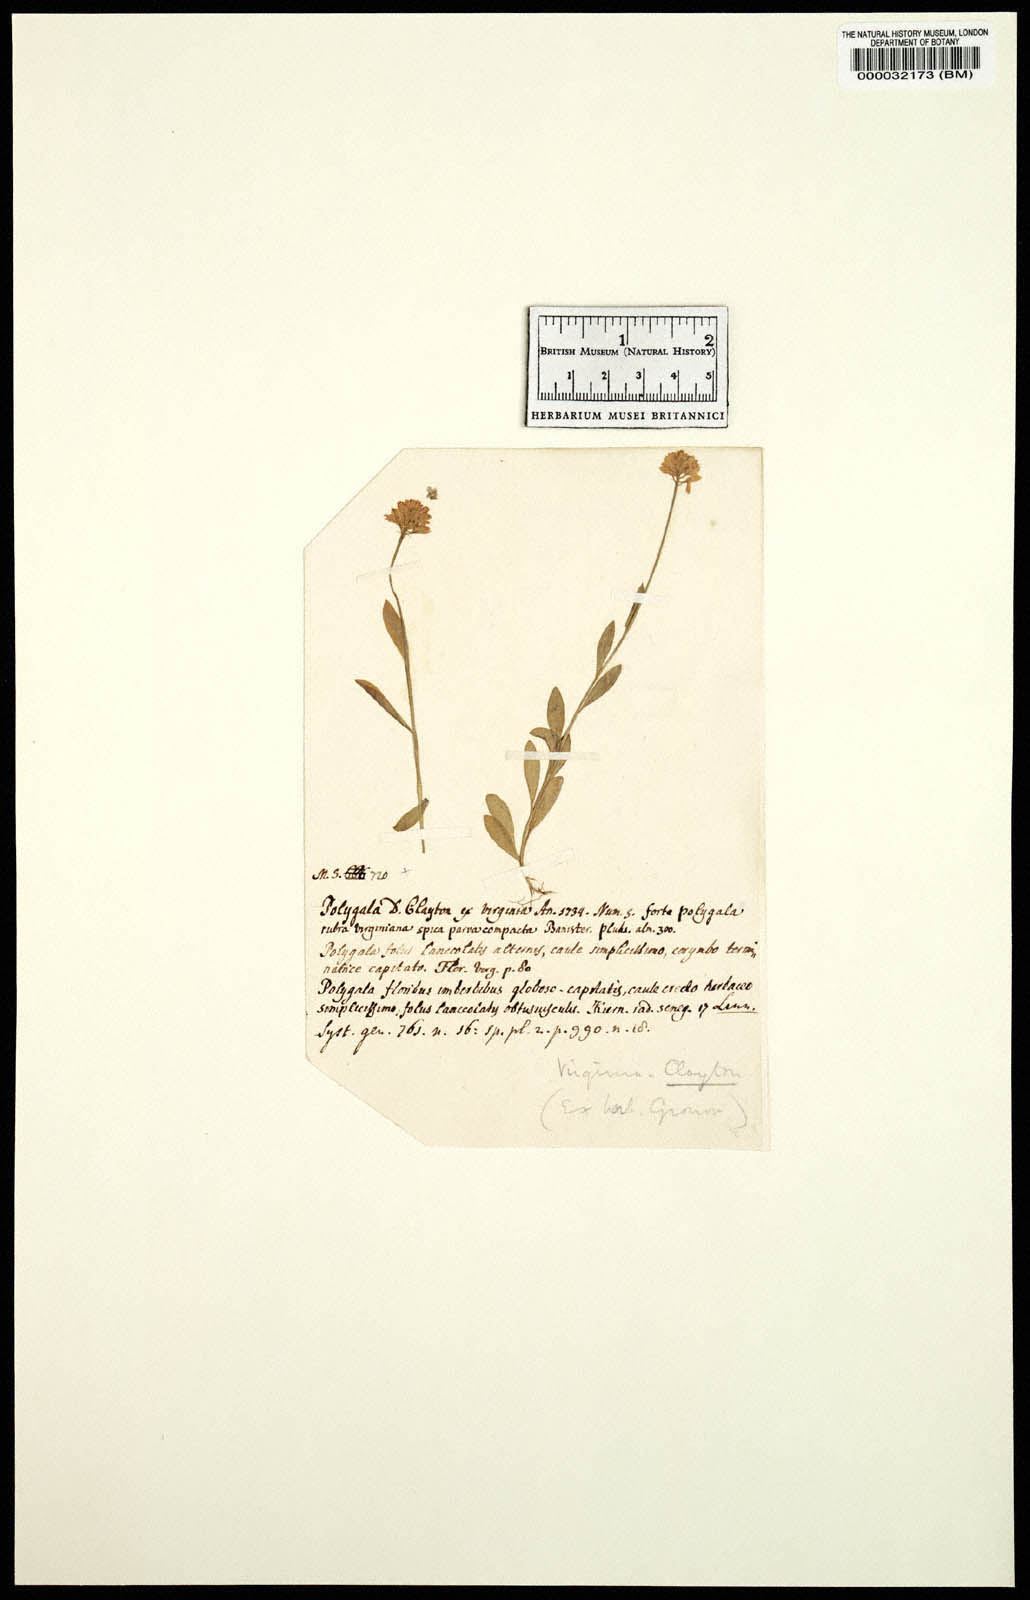 THE NATURAL HISTORY MUSEUM, LONDON
DEPARTMENT OF BOTANY
000032173 (BM)
1 2
BRITISH MUSEUM (NATURAL HISTORY)
1 2 3 4 5
HERBARIUM MUSEI BRITANNICI
M. S. 720 +
Polygala D. Clayton ex Virginia An. 1734. Num. 5. forte polygala
rubra virginiana spica parva compacta Banister. Pluk. alm. 300.
Polygala foliis lanceolatis alternis, caule simplicissimo, corymbo termi,
natrice capitato. Flor. Virg. p. 80
Polygala floribus imberbibus globoso-capitatis, caule erecto herbaceo
simplicissimo, foliis lanceolatis obtusiusculis. Kiern. rad. seneg. 17 Linn.
Syst. gen. 761. n. 16: sp. pl. 2. p. 990. n. 18.
Virginia - Clayton
(Ex herb. Gronov)